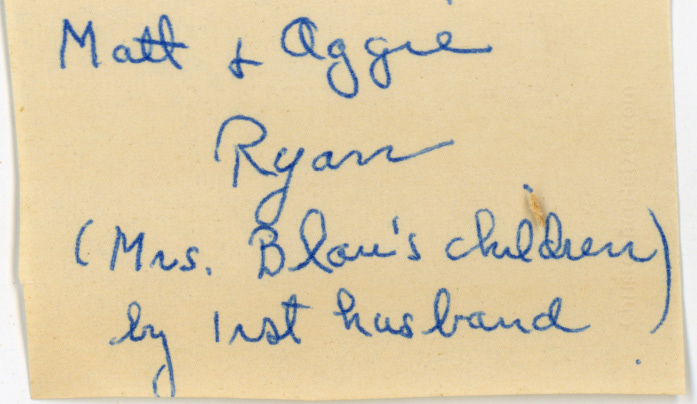 Matt & Aggie
Ryan
(Mrs. Blau's children)
by 1rst husband